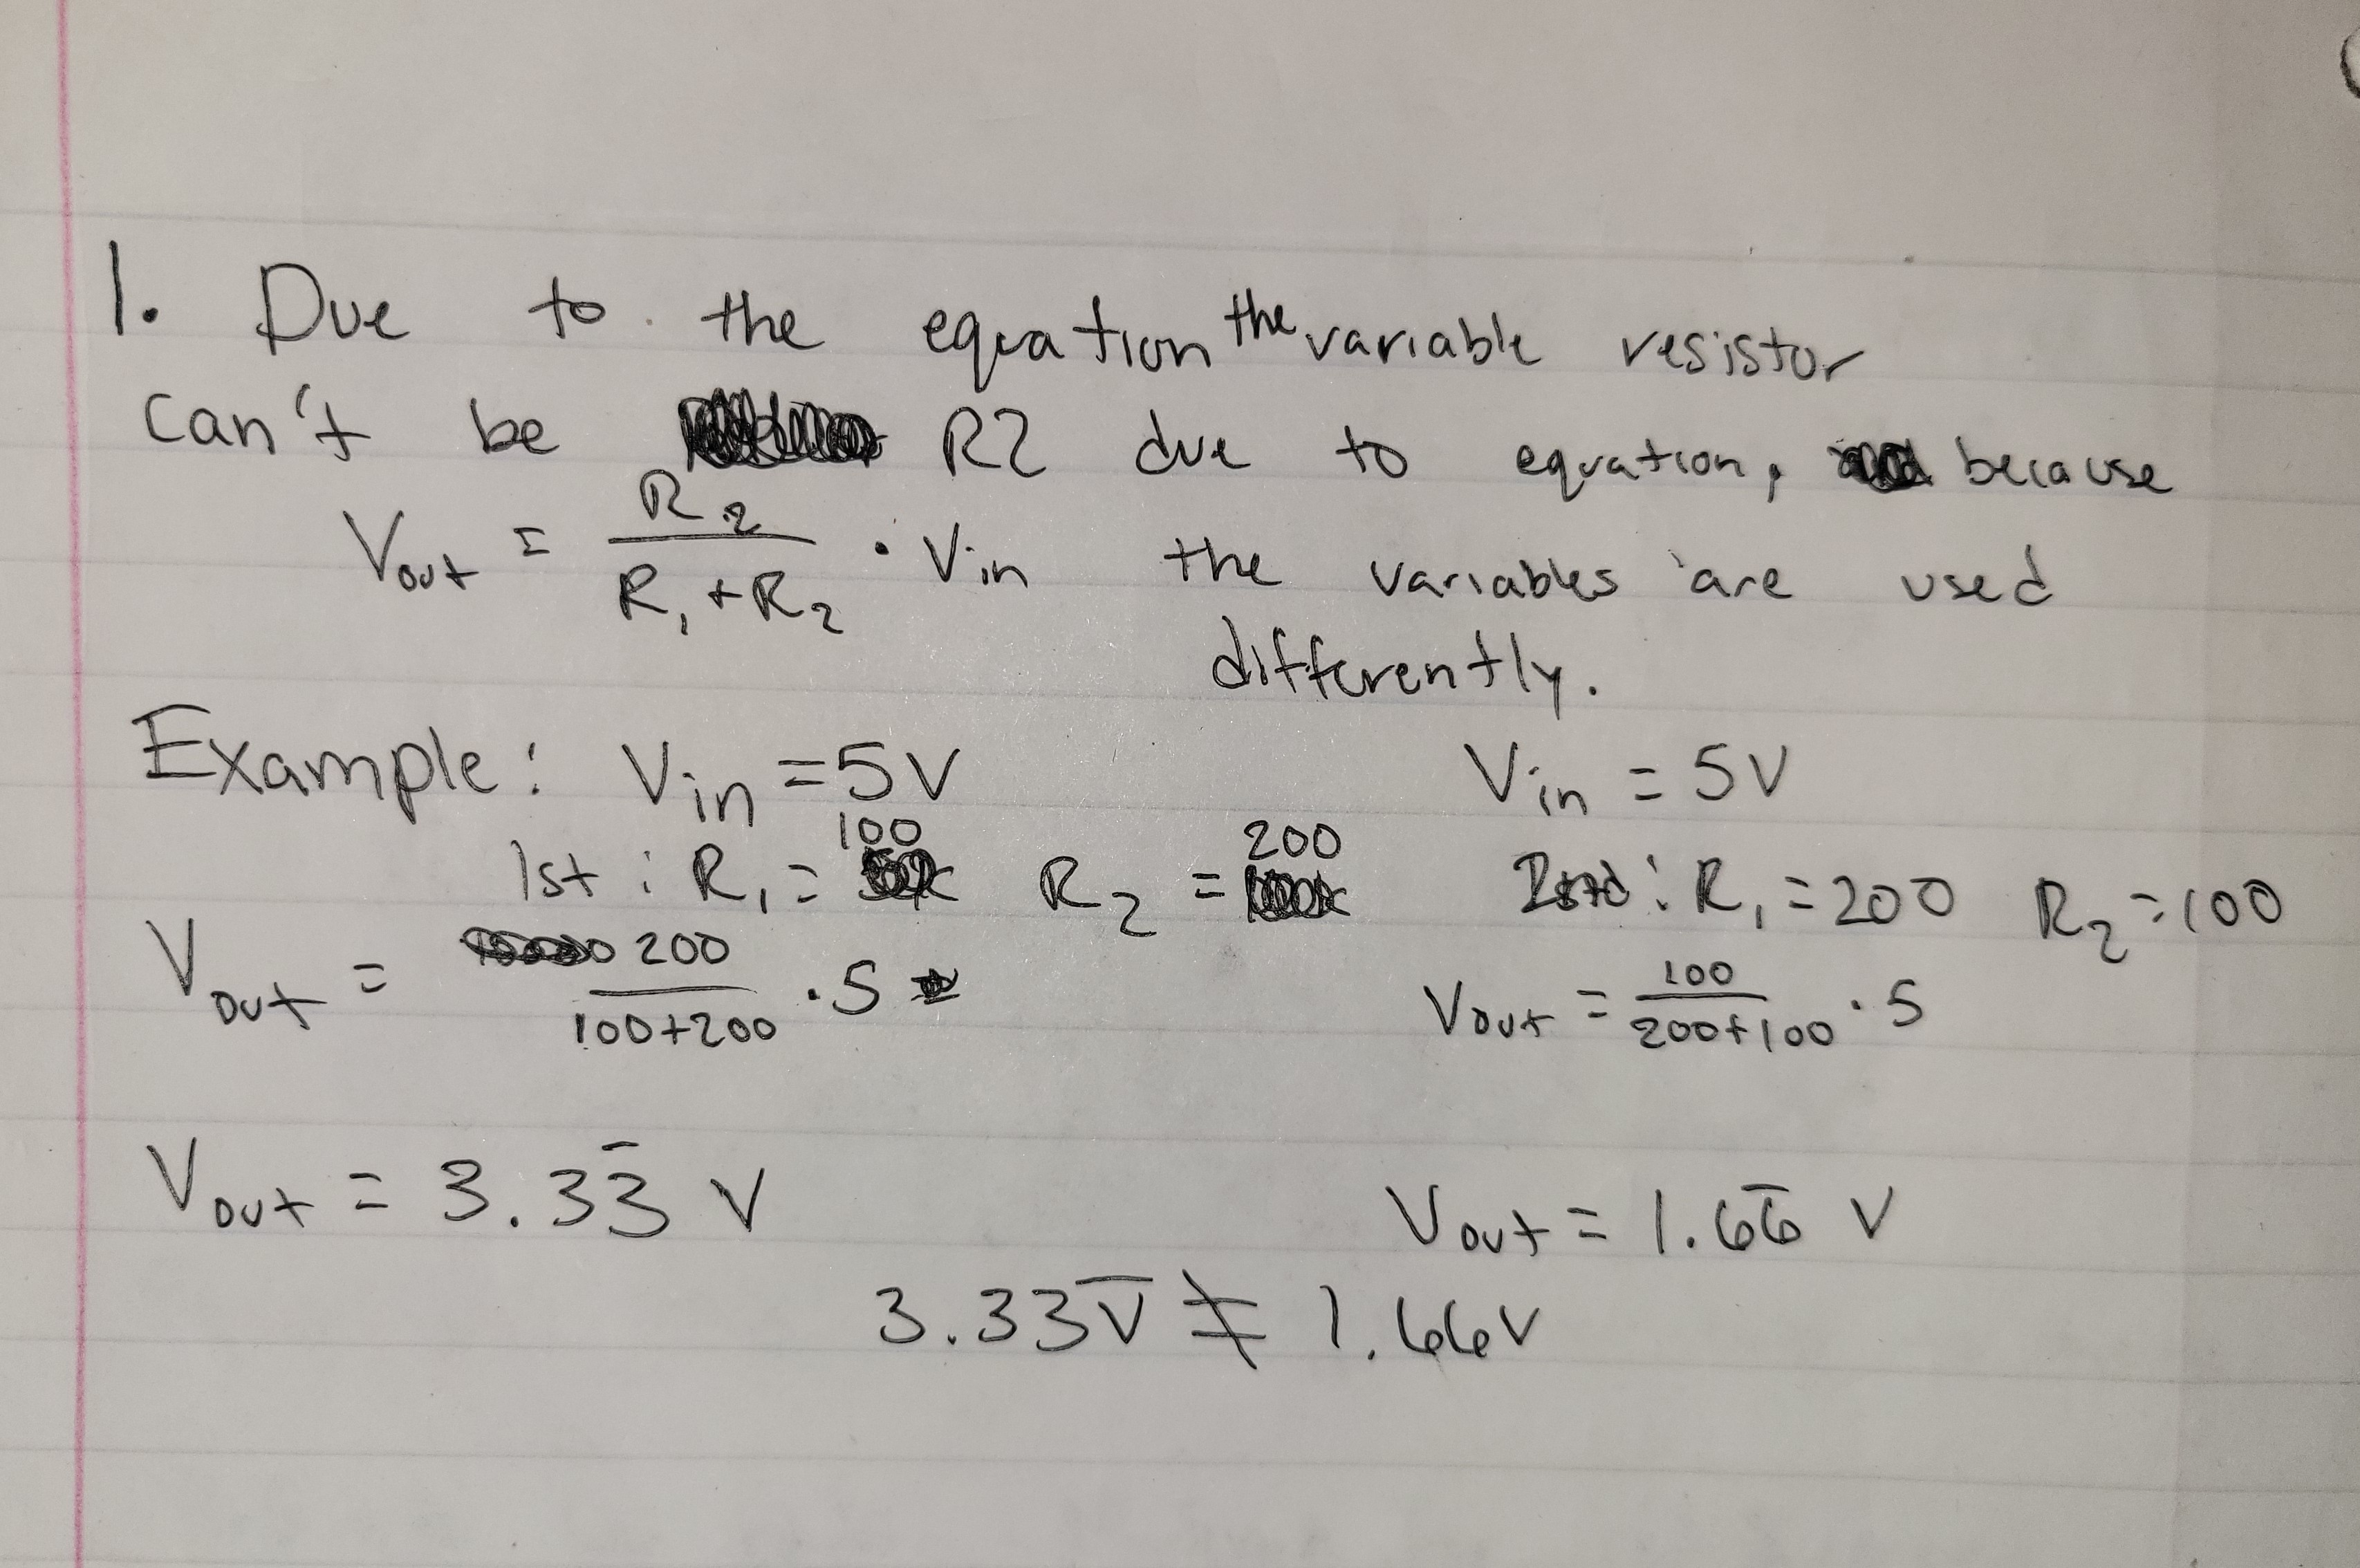 1. Due to the equation the variable resistor
can't be R2 due to equation, because
Vout = R2 / (R1 + R2) · Vin the variables are used
differently.
Example: Vin = 5V Vin = 5V
1st: R1 = 100 R2 = 200 2nd: R1 = 200 R2 = 100
Vout = 200 / (100+200) · 5 Vout = 100 / (200+100) · 5
Vout = 3.33̅ V Vout = 1.66̅ V
3.33V̅ ≠ 1.66V